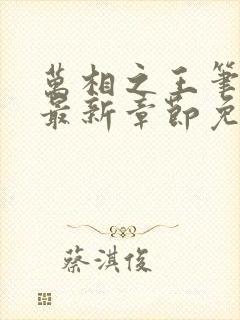 萬相之王筆
最新章節免
蔡淇俊